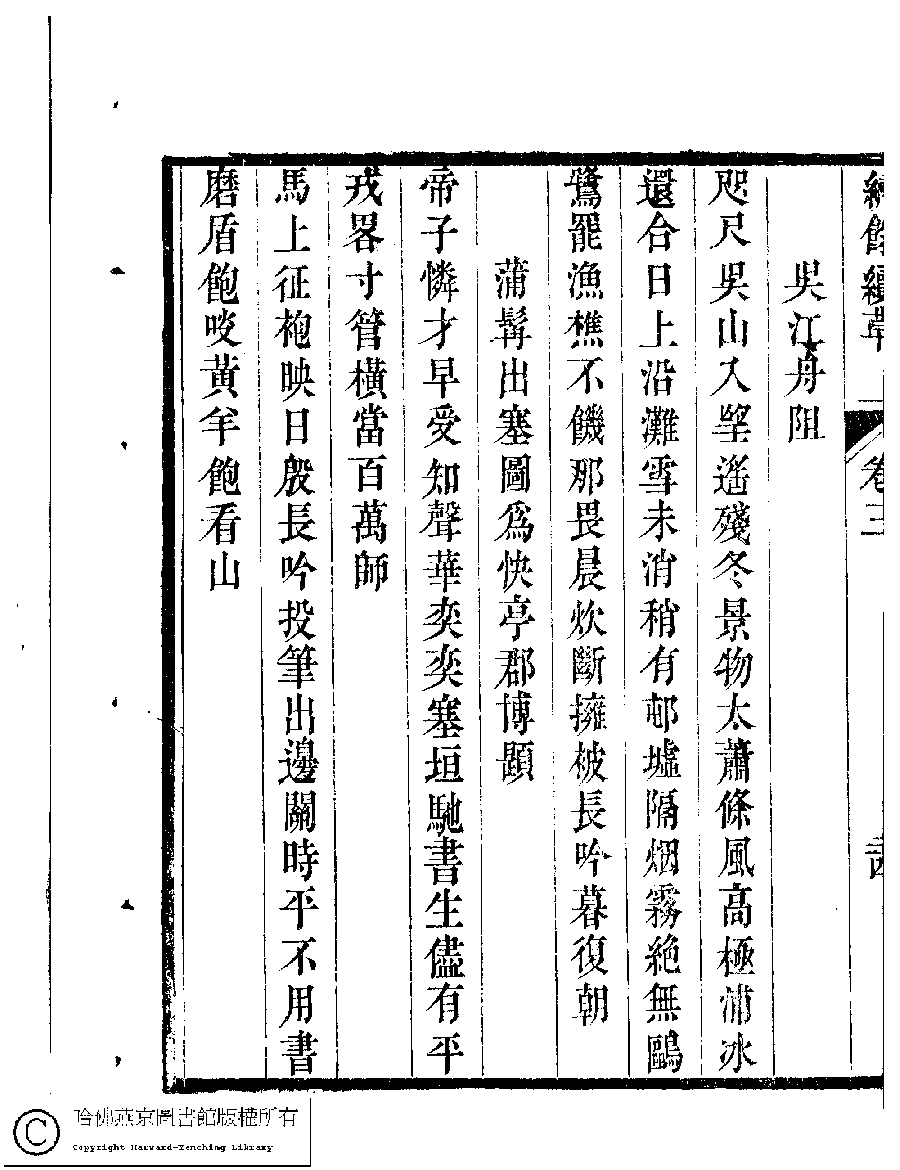 續草
卷三
吳江舟阻
咫尺吳山入望遙殘冬景物太蕭條風高極浦冰
還合日上沿灘雪未消稍有邨墟隔烟霧絶無鷗
鷺罷漁樵不饑那畏晨炊斷擁被長吟暮復朝
蒲髯出塞圖爲快亭郡博題
帝子憐才早受知聲華奕奕塞垣馳書生儘有平
戎畧寸管橫當百萬師
馬上征袍映日殷長吟投筆出邊關時平不用書
磨盾飽啖黃羊飽看山
哈佛燕京圖書館版權所有
Copyright Harvard-Yenching Library